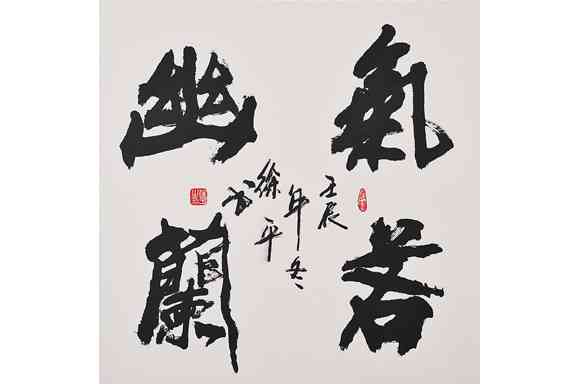 氣若
幽蘭
壬辰
年冬
徐平
书